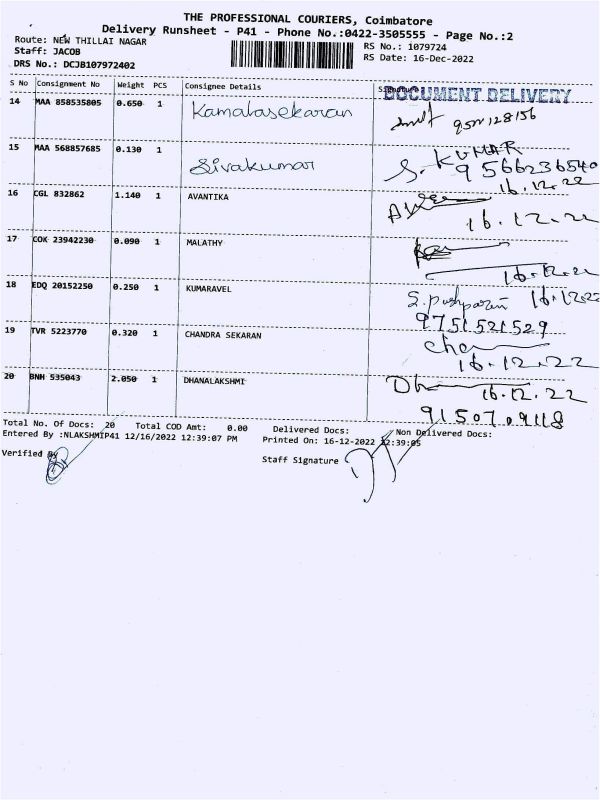 THE PROFESSIONAL COURIERS, Coimbatore
Delivery Runsheet - P41 - Phone No.:0422-3505555 - Page No.:2
Route: NEW THILLAI NAGAR
RS No.: 1079724
Staff: JACOB
RS Date: 16-Dec-2022
DRS No.: DCJB107972402
S No Consignment No Weight PCS Consignee Details Signature
DOCUMENT DELIVERY
14 MAA 858535805 0.650 1 Kamalasekaran
15 MAA 568857685 0.130 1 Sivakumar S. KUMAR
9566236540
16.12.22
16 CGL 832862 1.140 1 AVANTIKA
16.12.22
17 COK 23942230 0.090 1 MALATHY
16.12.22
18 EDQ 20152250 0.250 1 KUMARAVEL 16.12.22
9751521529
19 TVR 5223770 0.320 1 CHANDRA SEKARAN
16.12.22
20 BNH 535043 2.050 1 DHANALAKSHMI 16.12.22
9150709118
Total No. Of Docs: 20 Total COD Amt: 0.00 Delivered Docs: Non Delivered Docs:
Entered By :NLAKSHMIP41 12/16/2022 12:39:07 PM Printed On: 16-12-2022 12:39:05
Verified By
Staff Signature